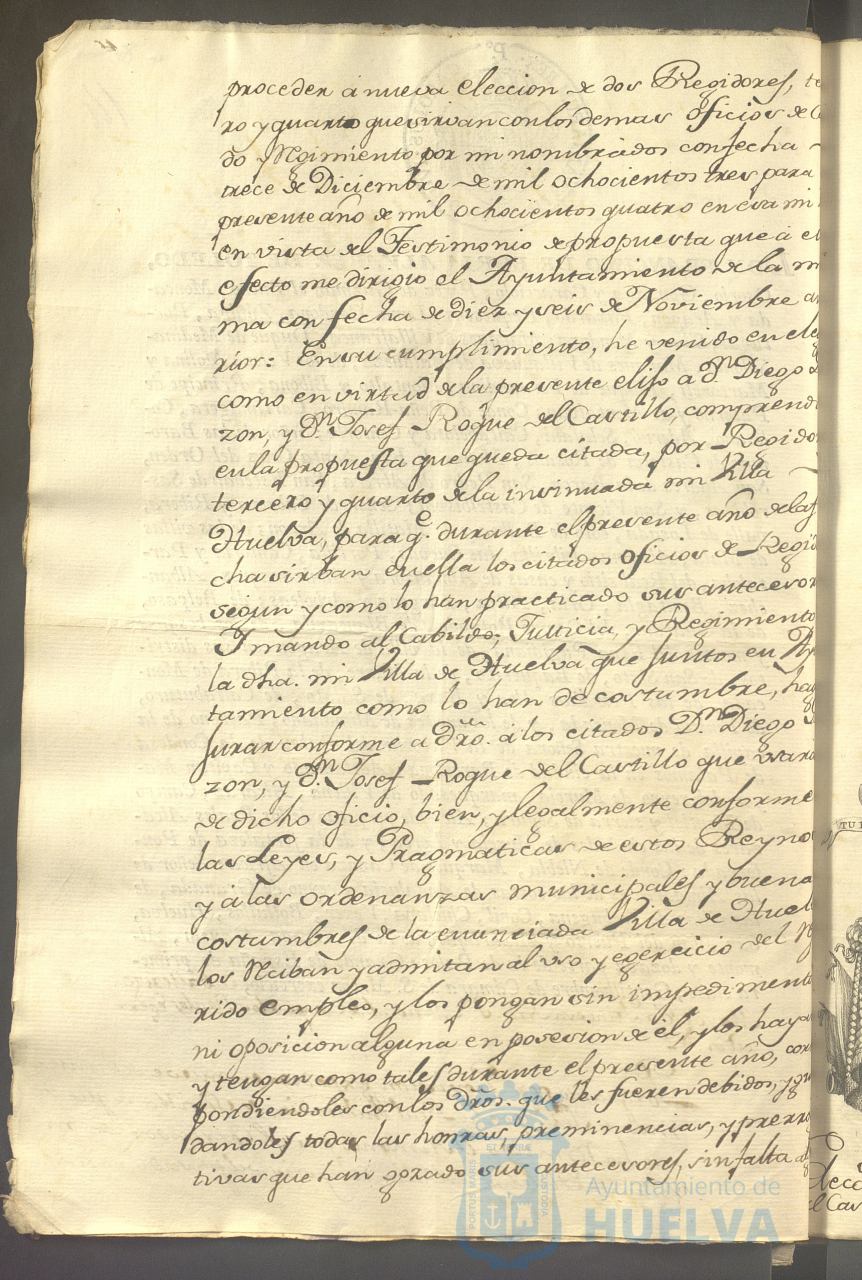 proceder a nueva eleccion de dos Regidores, te
ro y quarto que sirvan con los demas oficios de C
do y Regimiento por mi nombrados con fecha
trece de Diciembre de mil ochocientos tres para
presente año de mil ochocientos quatro en esa mi
en vista del Testimonio de propuesta que á e
efecto me dirigio el Ayuntamiento de la m
ma con fecha de diez y seis de Noviembre a
rior: En su cumplimiento, he venido en ele
como en virtud de la presente elijo a Dn. Diego
zon, y Dn. Josef Roque del Castillo, comprend
en la propuesta que queda citada, por Regido
tercero y quarto de la insinuada mi Villa
Huelva, para qe. durante el presente año de la f
cha sirban en ella los citados oficios de Regi
segun y como lo han practicado sus antecesor
I mando al Cabildo, Justicia, y Regimiento
la dha. mi Villa de Huelva que juntos en Ay
tamiento como lo han de costumbre, ha
jurar conforme a dro. á los citados Dn. Diego
zon, y Dn. Josef Roque del Castillo que usara
de dicho oficio, bien, y legalmente conforme
las Leyes, y Pragmaticas de estos Reyno
y á las ordenanzas municipales y buena
costumbres de la enunciada Villa de Huel
los Reciban y admitan al uso y egercicio del
rido empleo, y los pongan sin impediment
ni oposicion alguna en posesion de él, y los haya
y tengan como tales durante el presente año, cor
pondiendoles con los dros. que les fueren debidos, y gu
dandoles todas las honras, preminencias, y prerro
tivas que han gozado sus antecesores, sin falta al
Ayuntamiento de
HUELVA
PORTUS MARIS
CUSTODIA